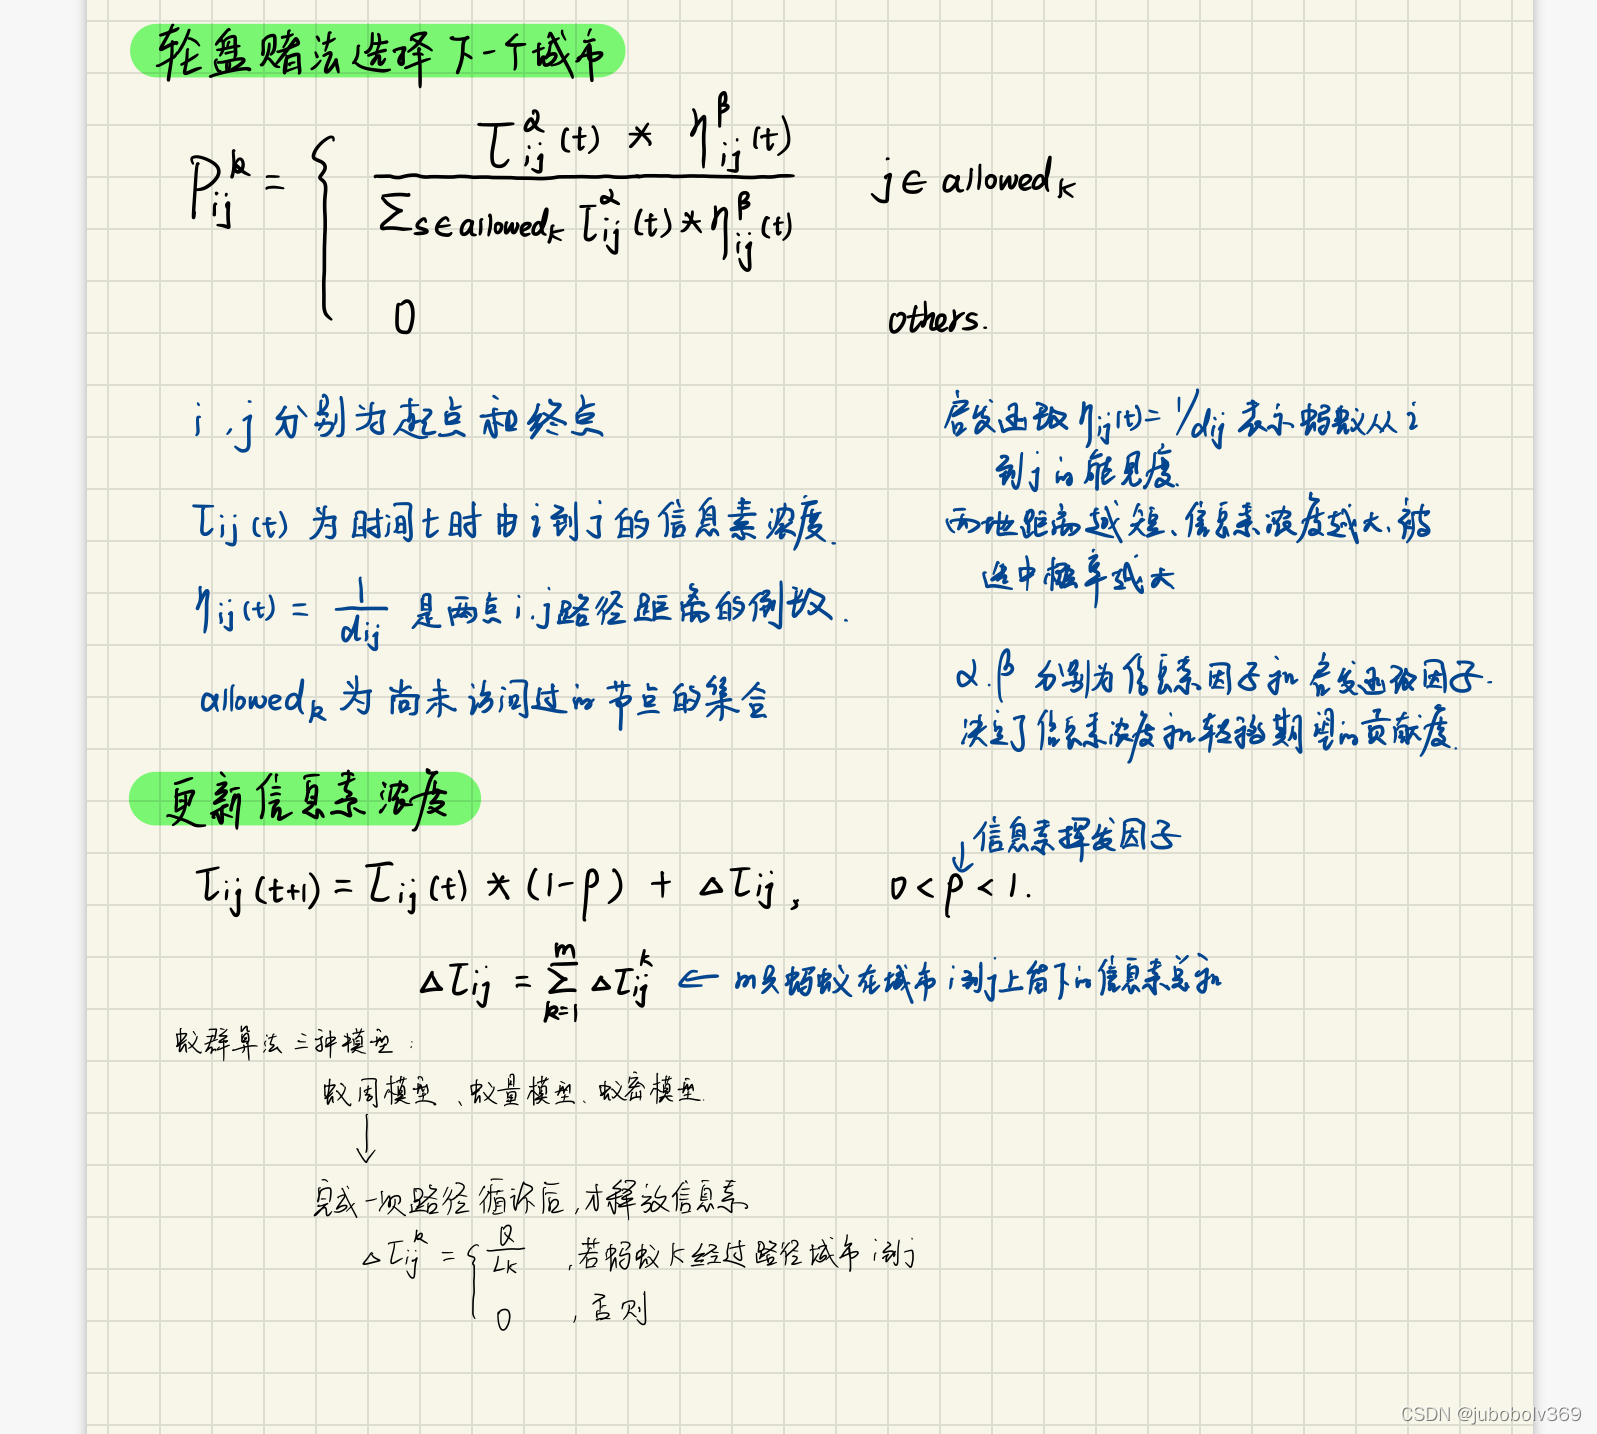 轮盘赌法选择下一个城市
P_{ij}^{k} = { \frac{τ_{ij}^{α}(t) * η_{ij}^{β}(t)}{∑_{s∈allowed_k} τ_{ij}^{α}(t) * η_{ij}^{β}(t)}   j∈allowed_k
0   others.
i,j分别为起点和终点
τ_{ij}(t) 为时间t时由i到j的信息素浓度.
η_{ij}(t) = \frac{1}{d_{ij}} 是两点i.j路径距离的倒数.
allowed_k 为尚未访问过的节点的集合
启发函数 η_{ij}(t) = 1/d_{ij} 表示蚂蚁从i
到j的能见度.
两地距离越短、信息素浓度越大、被
选中概率越大
α.β 分别为信息素因子和启发函数因子.
决定了信息素浓度和转移期望的贡献度.
更新信息素浓度
信息素挥发因子
τ_{ij}(t+1) = τ_{ij}(t) * (1-ρ) + Δτ_{ij},   0<ρ<1.
Δτ_{ij} = ∑_{k=1}^{m} Δτ_{ij}^{k} ← m只蚂蚁在城市i到j上留下的信息素总和
蚁群算法三种模型:
蚁周模型、蚁量模型、蚁密模型.
↓
完成一次路径循环后,才释放信息素
Δτ_{ij}^{k} = { \frac{Q}{L_K}   ,若蚂蚁K经过路径城市i到j
0   ,否则
CSDN @jubobolv369